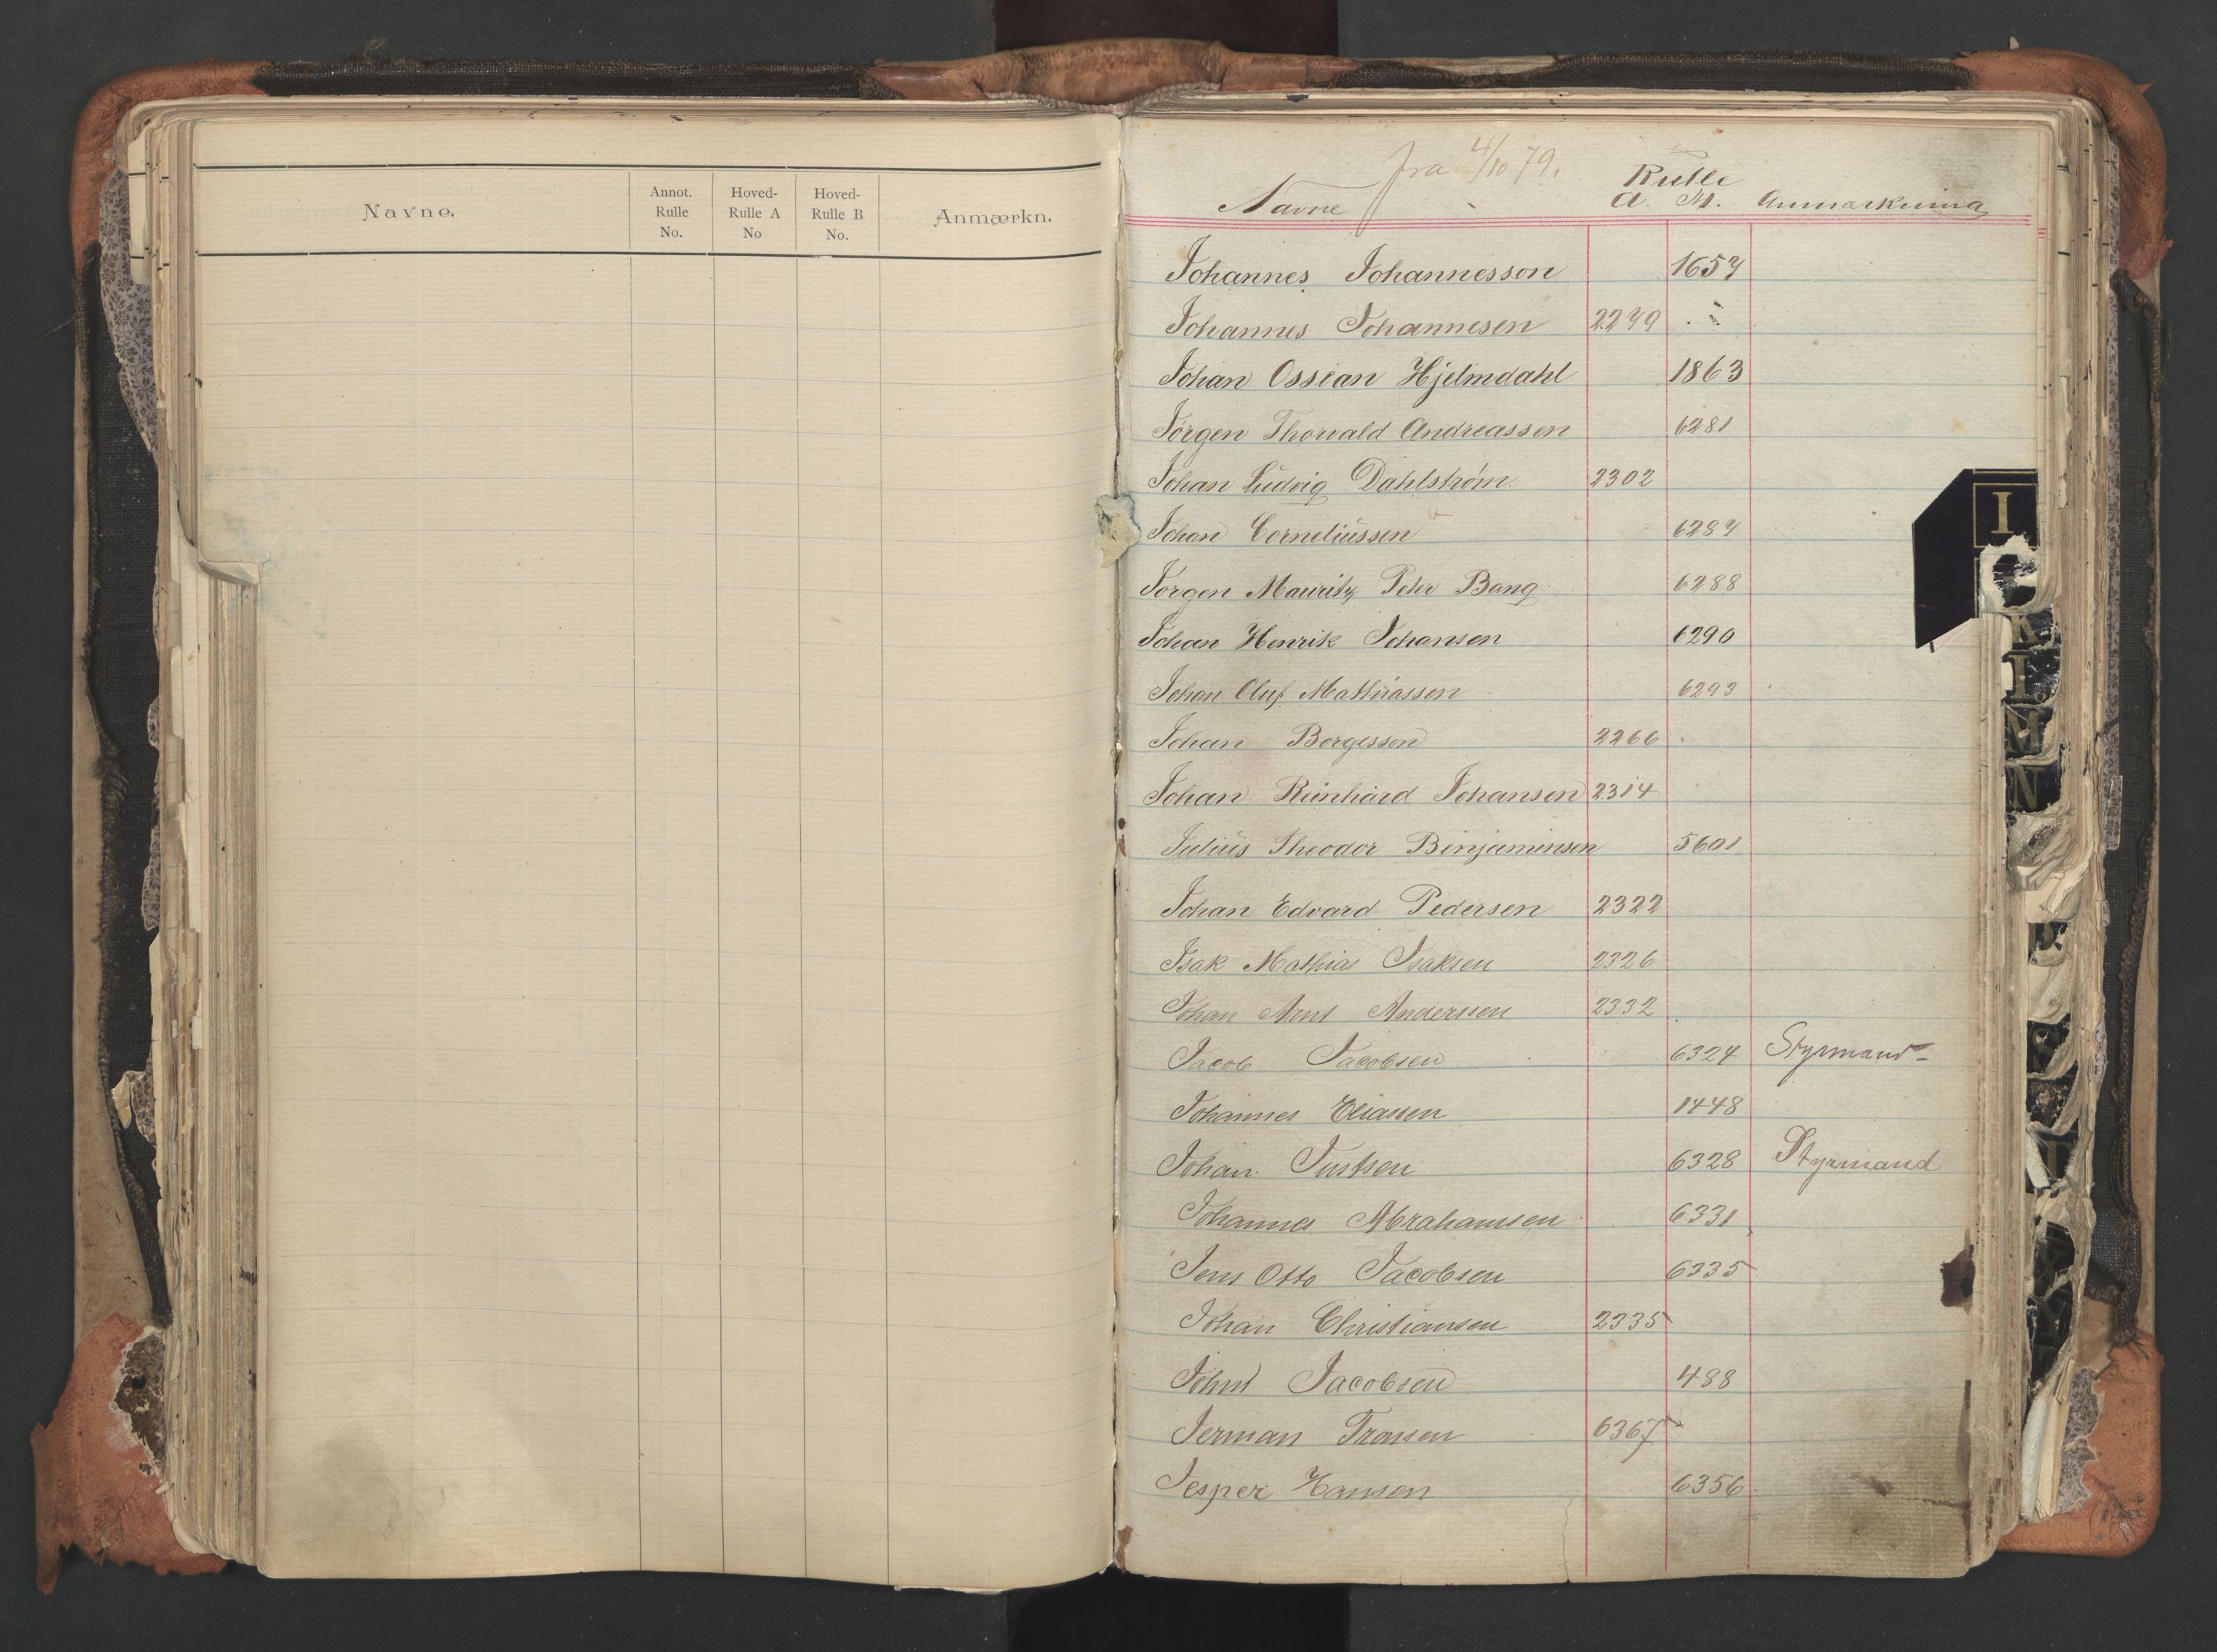 Navne.
Annot. Rulle No.
Hoved-Rulle A No
Hoved-Rulle B No.
Anmærkn.
fra 4/10 79.
Rulle
Navne A. M. Anmærkning
Johannes Johannesson 1657
Johannes Johannesen 2279
Johan Ossian Hjelmdahl 1863
Jørgen Thorvald Andreassen 6281
Johan Ludvig Dahlstrøm. 2302
Johan Corneliussen 6287
Jørgen Mauritz Peter Bang 6288
Johan Henrik Johansen 6290
Johan Oluf Mathiassen 6293
Johan Borgesson 2266
Johan Reinhard Johansen 2314
Julius Theodor Benjaminsen 5601
Johan Edvard Pedersen 2322
Isak Mathias Isaksen 2326
Johan Arnt Anderssen 2332
Jacob Jacobsen 6324 Styrmand
Johannes Eliassen 1448
Johan Justsen 6328 Styrmand
Johannes Abrahamsen 6331
Jens Otto Jacobsen 6335
Johan Christiansen 2335
John Jacobsen 488
Jerman Tronsen 6367
Jesper Hansen 6356
I
K
L
M
N